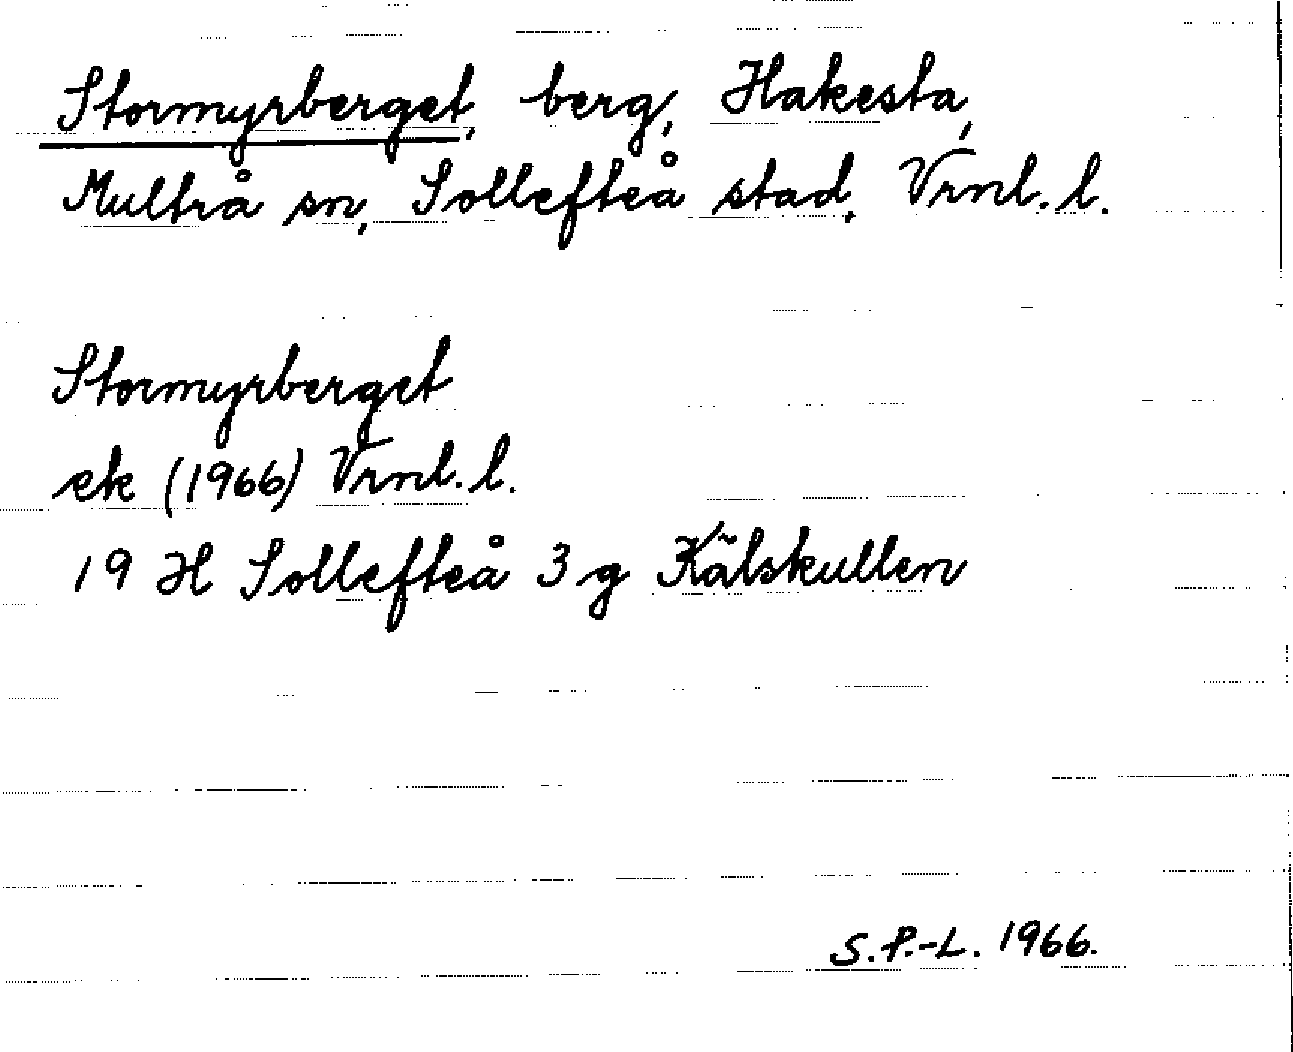 Stormyrberget, berg, Hakesta,
Multrå sn, Sollefteå stad, Vrnl. l.
Stormyrberget
ek (1966) Vrnl. l.
19 H Sollefteå 3 g Kälskullen
S.P.-L. 1966.